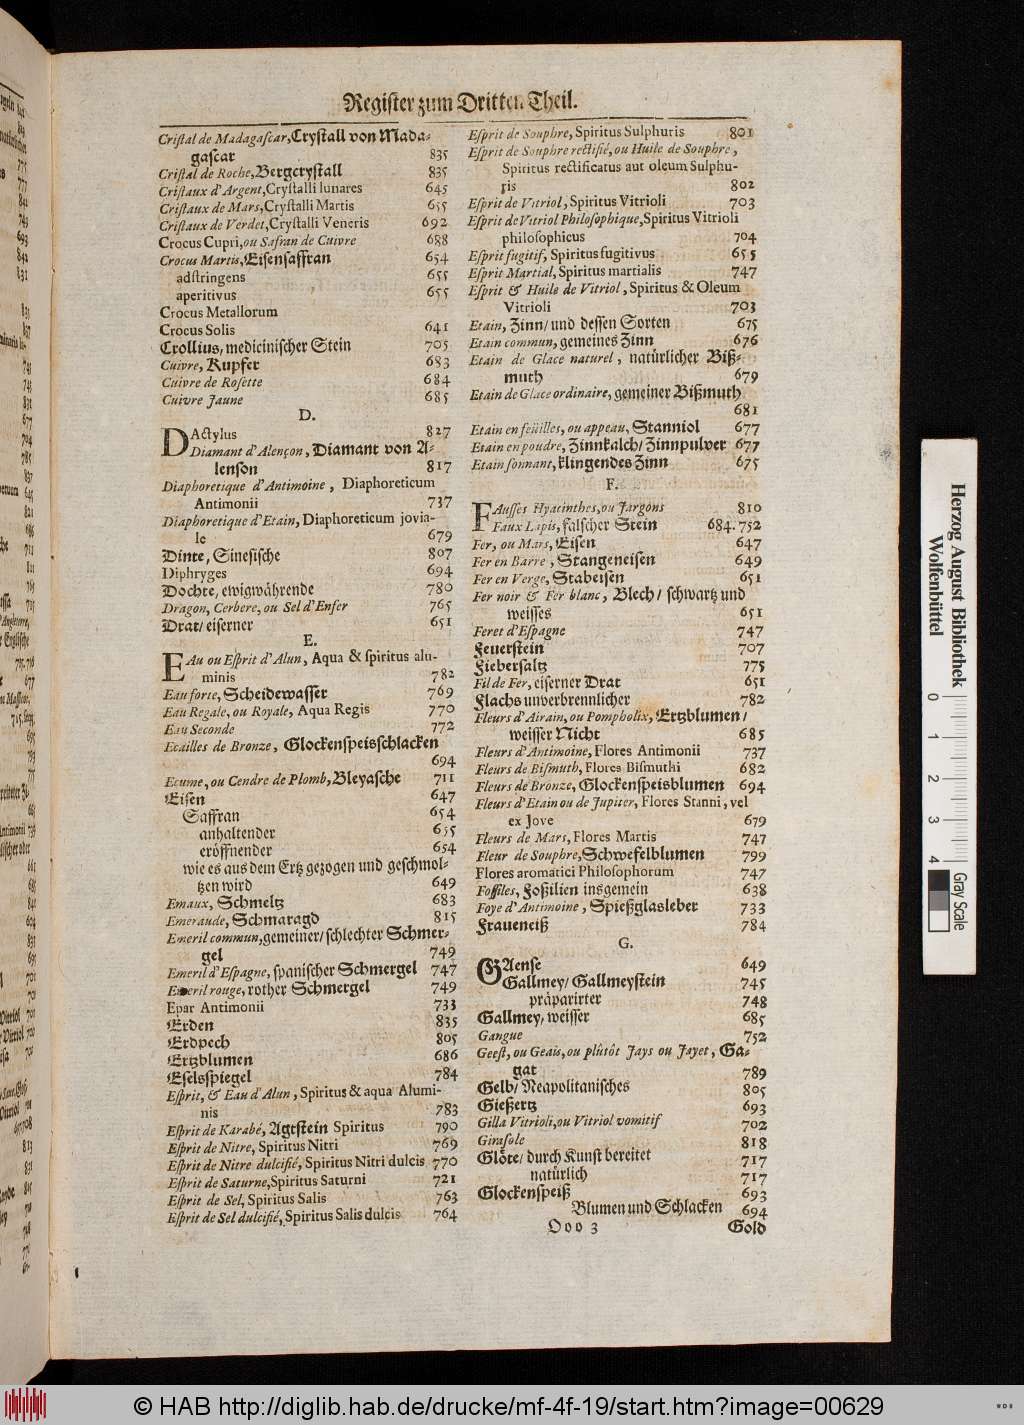 Register zum Dritten Theil.
Cristal de Madagascar, Crystall von Mada-
gascar 835
Cristal de Roche, Bergcrystall 835
Cristaux d'Argent, Crystalli lunares 645
Cristaux de Mars, Crystalli Martis 655
Cristaux de Verdet, Crystalli Veneris 692
Crocus Cupri, ou Safran de Cuivre 688
Crocus Martis, Eisensaffran 654
adstringens 655
aperitivus 655
Crocus Metallorum
Crocus Solis 641
Crollius, medicinischer Stein 705
Cuivre, Kupfer 683
Cuivre de Rosette 684
Cuivre Jaune 685
D.
DActylus 827
Diamant d'Alençon, Diamant von A-
lenson 817
Diaphoretique d'Antimoine, Diaphoreticum
Antimonii 737
Diaphoretique d'Etain, Diaphoreticum jovia-
le 679
Dinte, Sinesische 807
Diphryges 694
Dochte, ewigwährende 780
Dragon, Cerbere, ou Sel d'Enfer 765
Drat/ eiserner 651
E.
EAu ou Esprit d'Alun, Aqua & spiritus alu-
minis 782
Eau forte, Scheidewasser 769
Eau Regale, ou Royale, Aqua Regis 770
Eau Seconde 772
Ecailles de Bronze, Glockenspeisschlacken
694
Ecume, ou Cendre de Plomb, Bleyasche 711
Eisen 647
Saffran 654
anhaltender 655
eröffnender 654
wie es aus dem Ertz gezogen und geschmol-
tzen wird 649
Emaux, Schmeltz 683
Emeraude, Schmaragd 815
Emeril commun, gemeiner/ schlechter Schmer-
gel 749
Emeril d'Espagne, spanischer Schmergel 747
Emeril rouge, rother Schmergel 749
Epar Antimonii 733
Erden 835
Erdpech 805
Ertzblumen 686
Eselsspiegel 784
Esprit, & Eau d'Alun, Spiritus & aqua Alumi-
nis 783
Esprit de Karabé, Agtstein Spiritus 790
Esprit de Nitre, Spiritus Nitri 769
Esprit de Nitre dulcifié, Spiritus Nitri dulcis 770
Esprit de Saturne, Spiritus Saturni 721
Esprit de Sel, Spiritus Salis 763
Esprit de Sel dulcifié, Spiritus Salis dulcis 764
Esprit de Souphre, Spiritus Sulphuris 801
Esprit de Souphre rectifié, ou Huile de Souphre,
Spiritus rectificatus aut oleum Sulphu-
ris 802
Esprit de Vitriol, Spiritus Vitrioli 703
Esprit de Vitriol Philosophique, Spiritus Vitrioli
philosophicus 704
Esprit fugitif, Spiritus fugitivus 655
Esprit Martial, Spiritus martialis 747
Esprit & Huile de Vitriol, Spiritus & Oleum
Vitrioli 703
Etain, Zinn/ und dessen Sorten 675
Etain commun, gemeines Zinn 676
Etain de Glace naturel, natürlicher Biß-
muth 679
Etain de Glace ordinaire, gemeiner Bißmuth
681
Etain en feüilles, ou appeau, Stanniol 677
Etain en poudre, Zinnkalch/ Zinnpulver 677
Etain sonnant, klingendes Zinn 675
F.
FAusses Hyacinthes, ou Jargons 810
Faux Lapis, falscher Stein 684. 752
Fer, ou Mars, Eisen 647
Fer en Barre, Stangeneisen 649
Fer en Verge, Stabeisen 651
Fer noir & Fer blanc, Blech/ schwartz und
weisses 651
Feret d'Espagne 747
Feuerstein 707
Fiebersaltz 775
Fil de Fer, eiserner Drat 651
Flachs unverbrennlicher 782
Fleurs d'Airain, ou Pompholix, Ertzblumen/
weisser Nicht 685
Fleurs d'Antimoine, Flores Antimonii 737
Fleurs de Bismuth, Flores Bismuthi 682
Fleurs de Bronze, Glockenspeisblumen 694
Fleurs d'Etain ou de Jupiter, Flores Stanni, vel
ex Jove 679
Fleurs de Mars, Flores Martis 747
Fleur de Souphre, Schwefelblumen 799
Flores aromatici Philosophorum 747
Fossiles, Foßilien insgemein 638
Foye d'Antimoine, Spießglasleber 733
Fraueneiß 784
G.
GAense 649
Gallmey/ Gallmeystein 745
präparirter 748
Gallmey, weisser 685
Gangue 752
Geest, ou Geais, ou plûtôt Jays ou Jayet, Ga-
gat 789
Gelb/ Neapolitanisches 805
Gießertz 693
Gilla Vitrioli, ou Vitriol vomitif 702
Girasole 818
Glöte/ durch Kunst bereitet 717
natürlich 717
Glockenspeiß 693
Blumen und Schlacken 694
Ooo 3 Gold
Herzog August Bibliothek
Wolfenbüttel
0 1 2 3 4
Gray Scale
© HAB http://diglib.hab.de/drucke/mf-4f-19/start.htm?image=00629